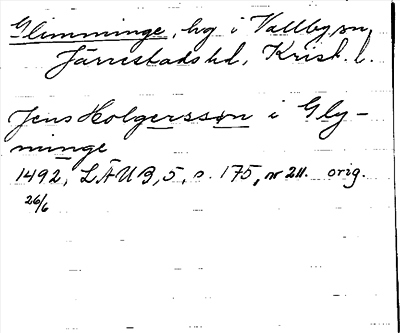 Glimminge, hg i Vallby sn,
Järrestads hd, Krist. l.
Jens Holgersson i Gly-
minge
1492, LÄUB, 5, s. 175, nr 211. orig.
26/6